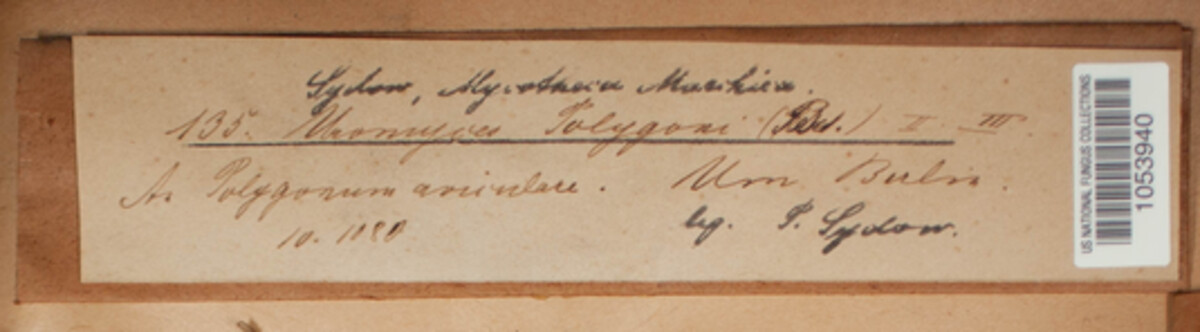 Sydow, Mycotheca Marchica.
135. Uromyces Polygoni (Pers.) II III.
An Polygonum aviculare. Um Berlin.
10. 1880 leg. P. Sydow.
US NATIONAL FUNGUS COLLECTIONS
1053940